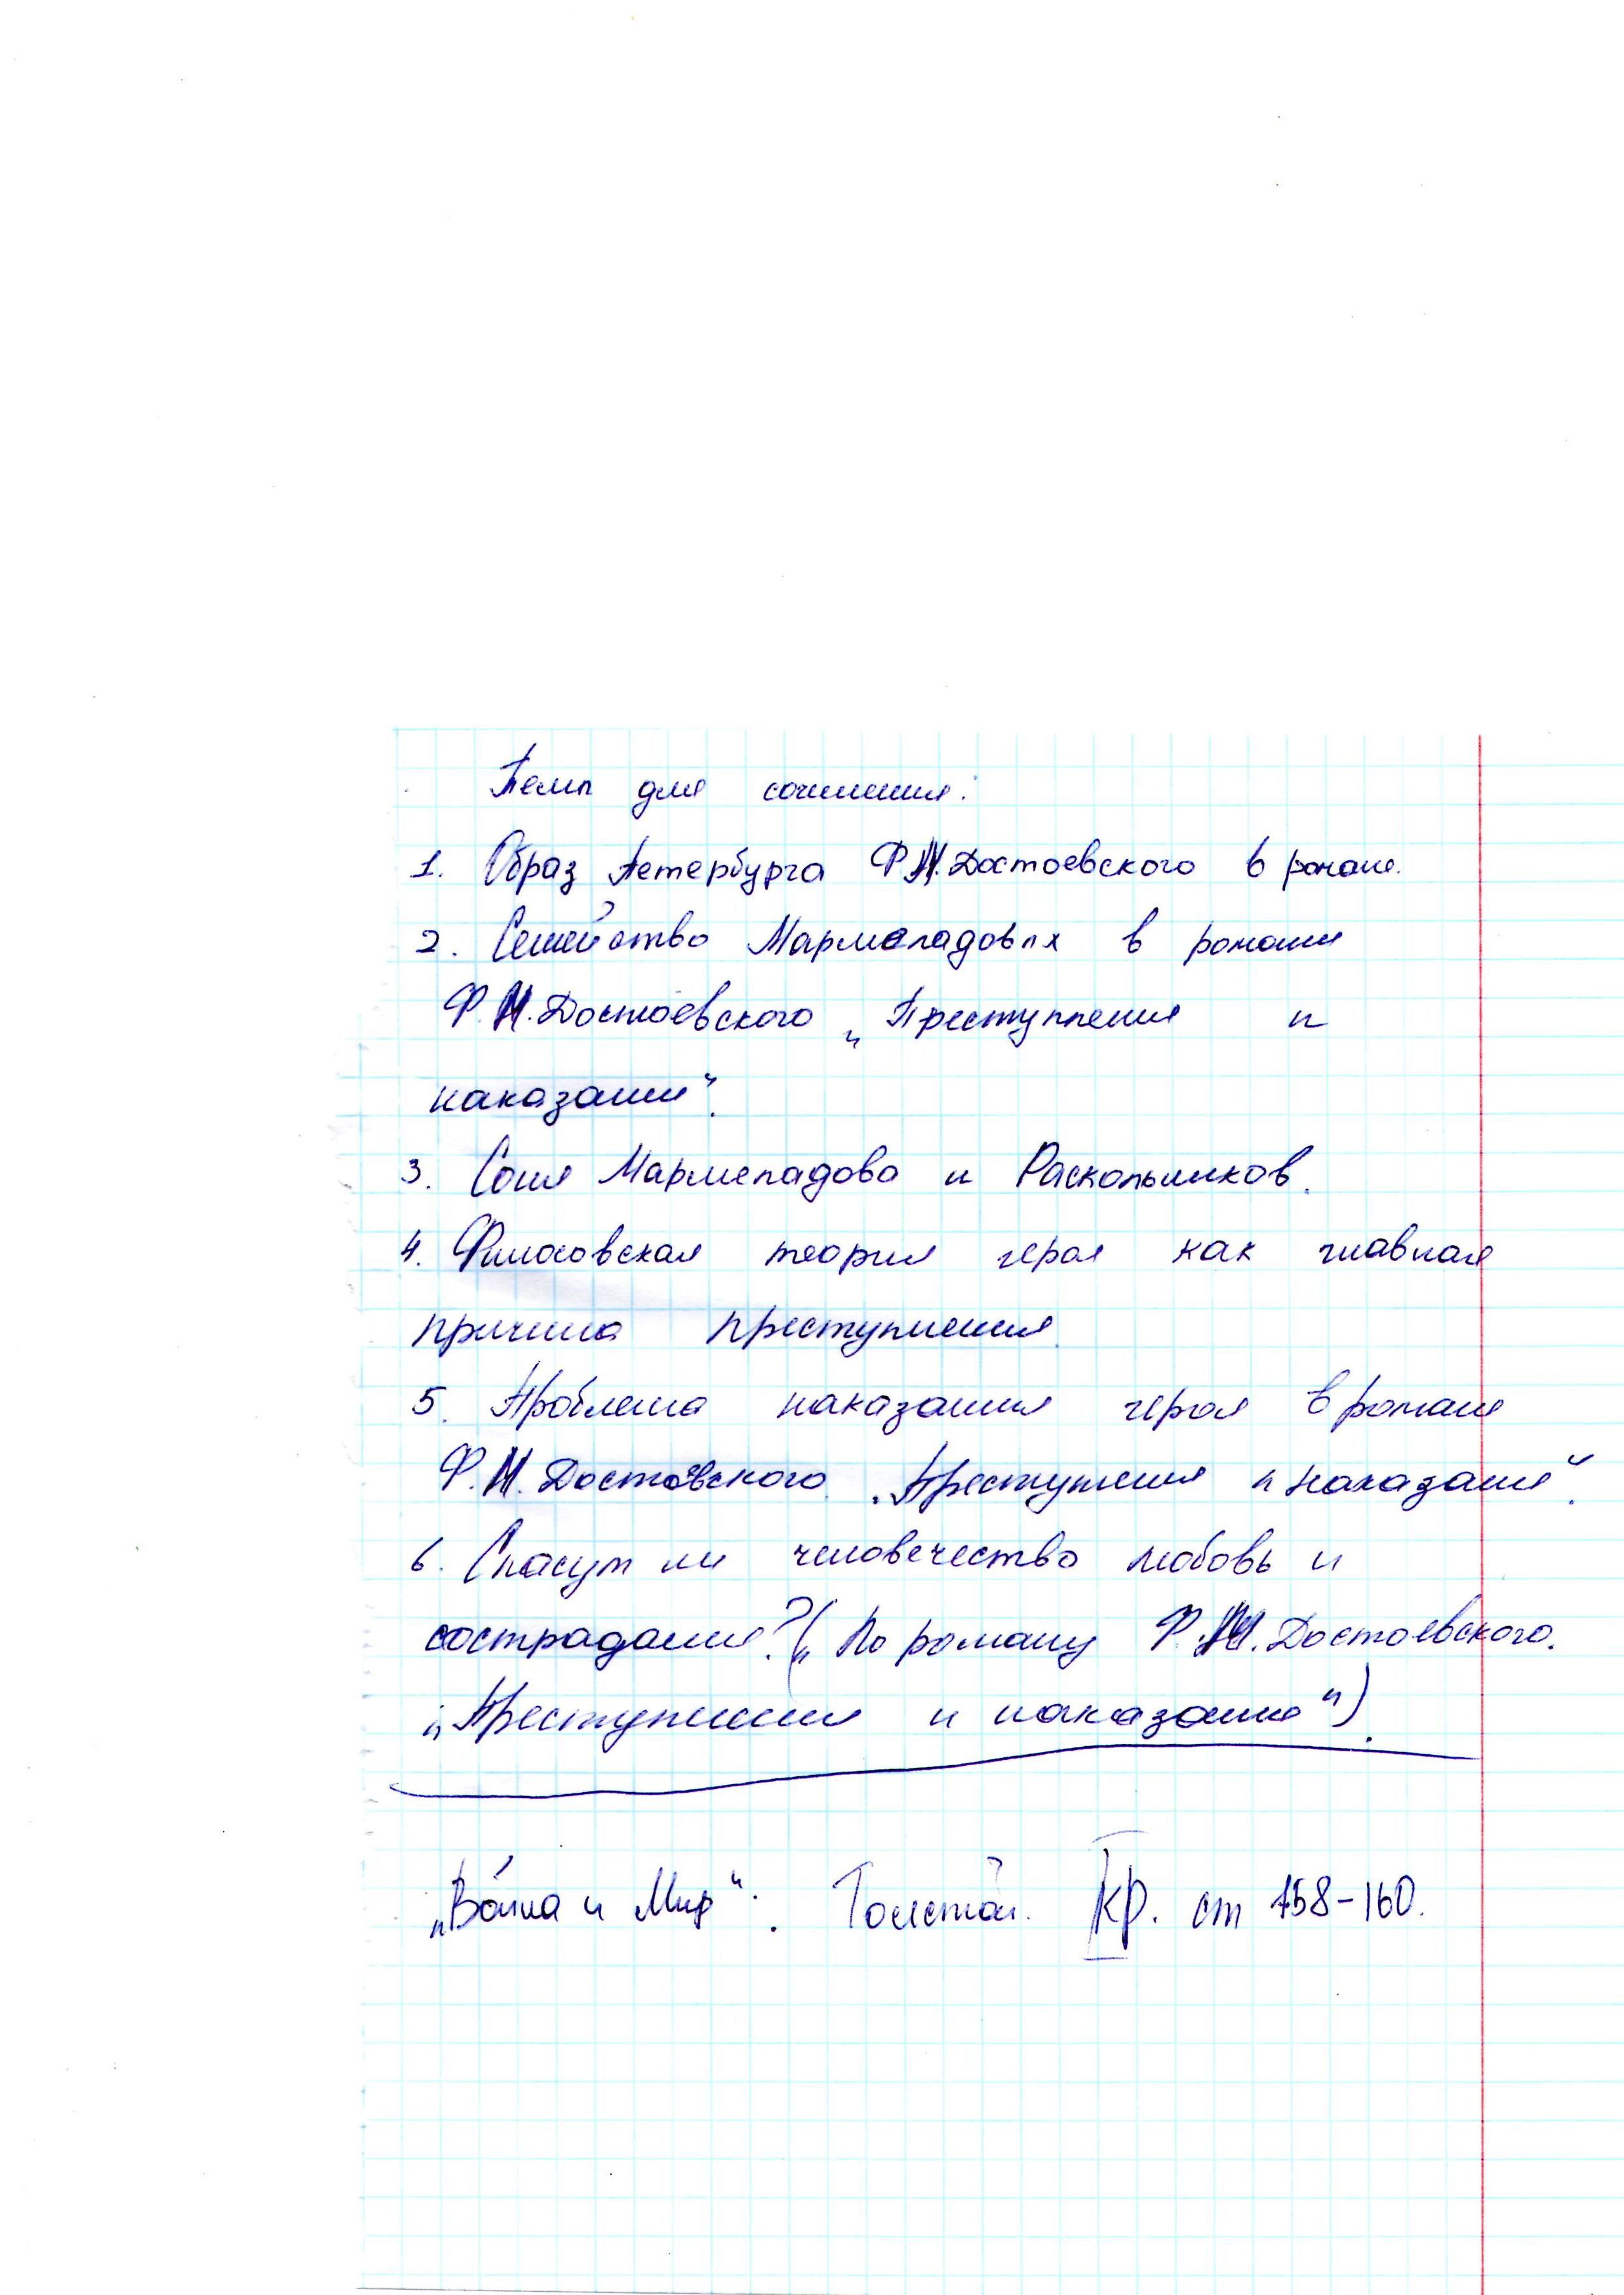 Темы для сочинения:
1. Образ Петербурга Ф.М.Достоевского в романе.
2. Семейство Мармеладовых в романе
Ф.М.Достоевского „Преступление и
наказание“.
3. Соня Мармеладова и Раскольников.
4. Философская теория героя как главная
причина преступления.
5. Проблема наказания героя в романе
Ф.М.Достоевского „Преступление и наказание“.
6. Спасут ли человечество любовь и
сострадание? („По роману Ф.М.Достоевского.
„Преступление и наказание“).
„Война и Мир“. Толстой. КР. ст 158-160.